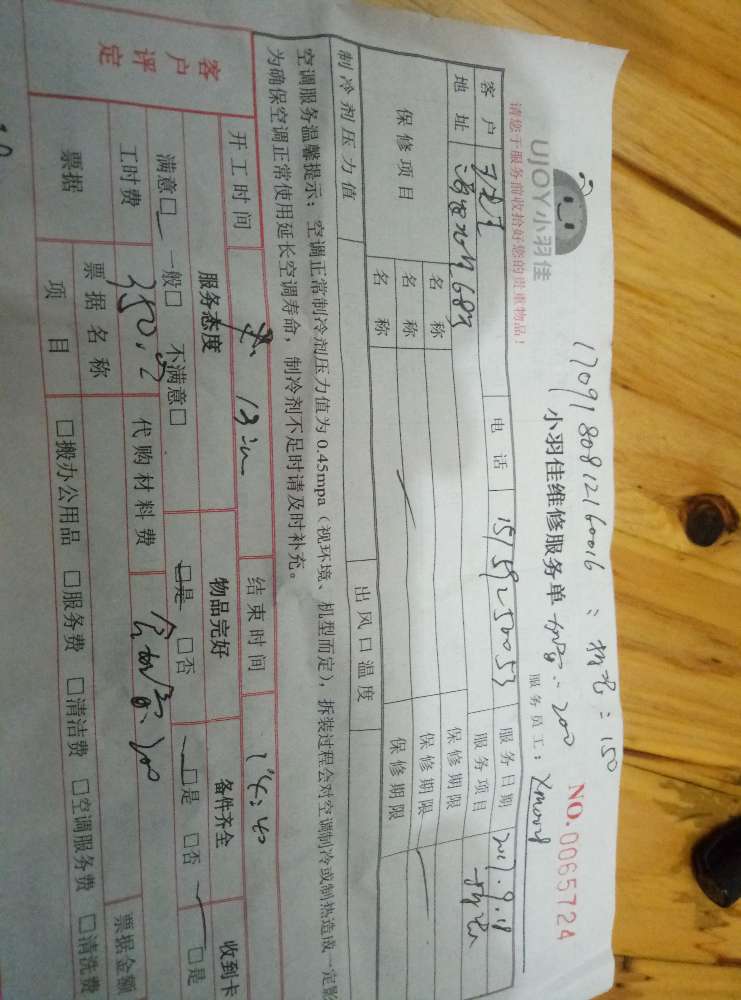 170918081216016
150
UJOY小羽佳
小羽佳维修服务单
200
NO.0065724
请您于服务前收拾好您的贵重物品!
服务员工:
客户
电话 15159250053
服务日期 2017.9.18
地址
服务项目
保修项目
名称
保修期限
名称
保修期限
名称
保修期限
制冷剂压力值
出风口温度
空调服务温馨提示:空调正常制冷剂压力值为0.45mpa(视环境、机型而定),拆装过程会对空调制冷或制热造成一定影
为确保空调正常使用延长空调寿命,制冷剂不足时请及时补充。
开工时间
结束时间 14:40
客户评定
服务态度
物品完好
备件齐全
收到卡
满意□ 一般□ 不满意□
□是 □否
□是 □否
□是
工时费 350
代购材料费
票据
票据名称
票据金额
项目
□搬办公用品 □服务费 □清洁费 □空调服务费 □清洗费